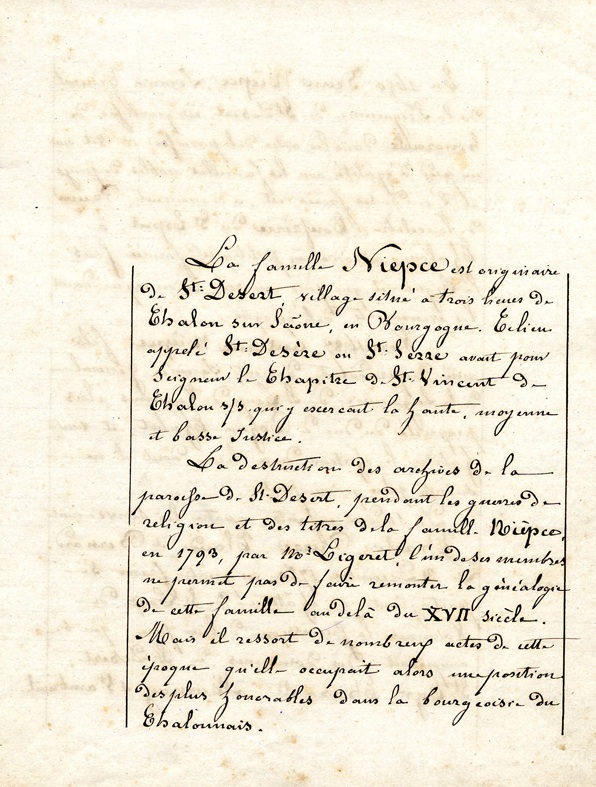 La famille Nièpce est originaire
de St. Desert, village situé à trois lieues de
Chalon sur Saône, en Bourgogne. Ce lieu
appelé St. Desère ou St. Serre avait pour
Seigneur le Chapitre de St. Vincent de
Chalon s/s. qui y escercait la haute, moyenne
et basse Justice.
La destruction des archives de la
paroisse de St. Desert, pendant les guerres de
religion et des titres de la famille Nièpce,
en 1793, par Mr. Ligeret, l'un de ses membres
ne permet pas de faire remonter la généalogie
de cette famille au delà du XVII siècle.
Mais il ressort de nombreux actes de cette
époque qu'elle occupait alors une position
des plus honorables dans la bourgeoisie du
Chalonnais.